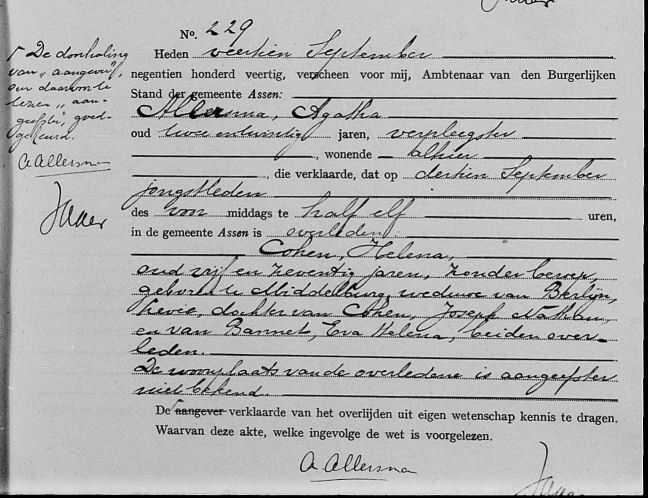 No. 229
Heden veertien September
negentien honderd veertig, verscheen voor mij, Ambtenaar van den Burgerlijken
Stand der gemeente Assen:
Allersma, Agatha
oud twee en twintig jaren, verpleegster
, wonende alhier
, die verklaarde, dat op dertien September
jongstleden
des voor middags te half elf uren,
in de gemeente Assen is overleden:
Cohen, Helena,
oud vijf en zeventig jaren, zonder beroep,
geboren te Middelburg, weduwe van Berlijn,
Levie, dochter van Cohen, Joseph Nathan,
en van Bannet, Eva Helena, beiden over-
leden.
De woonplaats van de overledene is aangeefster
niet bekend.
De aangever verklaarde van het overlijden uit eigen wetenschap kennis te dragen.
Waarvan deze akte, welke ingevolge de wet is voorgelezen.
A Allersma
De doorhaling
van "aangever",
en daarvoor te
lezen "aan-
geefster", goed-
gekeurd.
A Allersma